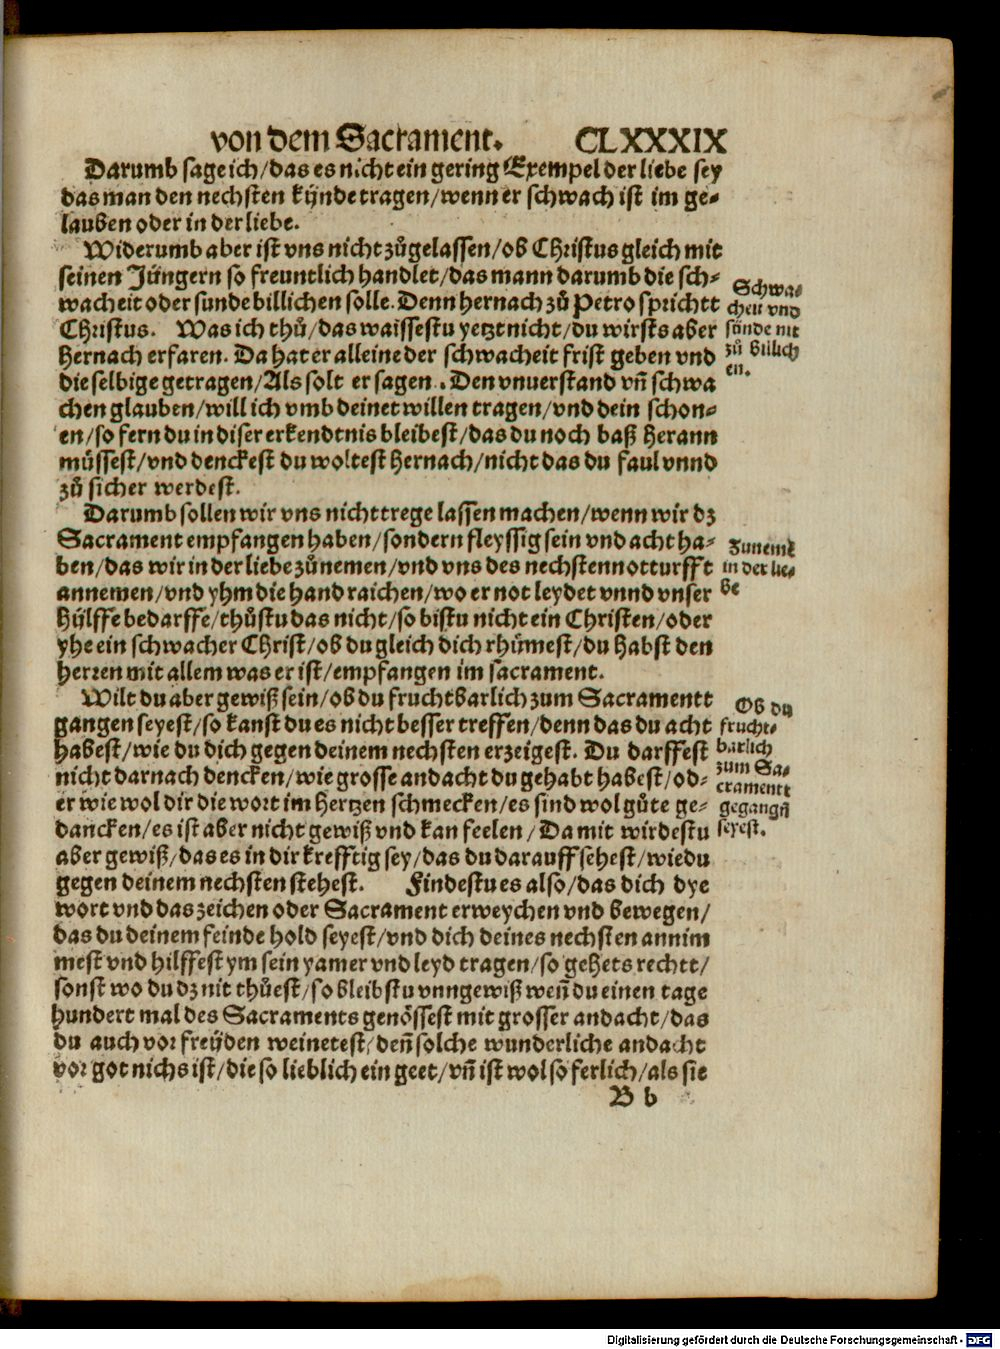 von dem Sacrament. CLXXXIX
Darumb sage ich/das es nicht ein gering Exempel der liebe sey
das man den nechsten kÿnde tragen/wenn er schwach ist im ge-
lauben oder in der liebe.
Widerumb aber ist vns nicht zůgelassen/ob Christus gleich mit
seinen Jüngern so freuntlich handlet/das mann darumb die sch-
wacheit oder sunde billichen solle. Denn hernach zů Petro sprichtt
Christus. Was ich thů/das waissestu yetzt nicht/du wirsts aber
hernach erfaren. Da hat er alleine der schwacheit frist geben vnd
die selbige getragen/Als solt er sagen. Den vnuerstand vñ schwa
chen glauben/will ich vmb deinet willen tragen/vnd dein schon-
en/so fern du in diser erkendtnis bleibest/das du noch baß herann
müssest/vnd denckest du woltest hernach/nicht das du faul vnnd
zů sicher werdest.
Darumb sollen wir vns nicht trege lassen machen/wenn wir dz
Sacrament empfangen haben/sondern fleyssig sein vnd acht ha-
ben/das wir in der liebe zůnemen/vnd vns des nechsten notturfft
annemen/vnd yhm die hand raichen/wo er not leydet vnnd vnser
hÿlffe bedarffe/thůstu das nicht/so bistu nicht ein Christen/oder
yhe ein schwacher Christ/ob du gleich dich rhümest/du habst den
herren mit allem was er ist/empfangen im sacrament.
Wilt du aber gewiß sein/ob du fruchtbarlich zum Sacramentt
gangen seyest/so kanst du es nicht besser treffen/denn das du acht
habest/wie du dich gegen deinem nechsten erzeigest. Du darffest
nicht darnach dencken/wie grosse andacht du gehabt habest/od-
er wie wol dir die wort im hertzen schmecken/es sind wol gůte ge-
dancken/es ist aber nicht gewiß vnd kan feelen/Damit wirdestu
aber gewiß/das es in dir krefftig sey/das du darauff sehest/wie du
gegen deinem nechsten stehest. Findestu es also/das dich dye
wort vnd das zeichen oder Sacrament erweychen vnd bewegen/
das du deinem feinde hold seyest/vnd dich deines nechsten annim
mest vnd hilffest ym sein yamer vnd leyd tragen/so gehets rechtt/
sonst wo du dz nit thůest/so bleibstu vnngewiß weñ du einen tage
hundert mal des Sacraments genössest mit grosser andacht/das
du auch vor freÿden weinetest/deñ solche wunderliche andacht
vor got nichs ist/die so lieblich ein geet/vñ ist wol so ferlich/als sie
B b
Schwa-
cheit vnd
sünde nit
zů billich
en.
Zunemē
in der lie-
be
Ob du
frucht-
barlich
zum Sa-
cramentt
gegangñ
seyest.
Digitalisierung gefördert durch die Deutsche Forschungsgemeinschaft - DFG